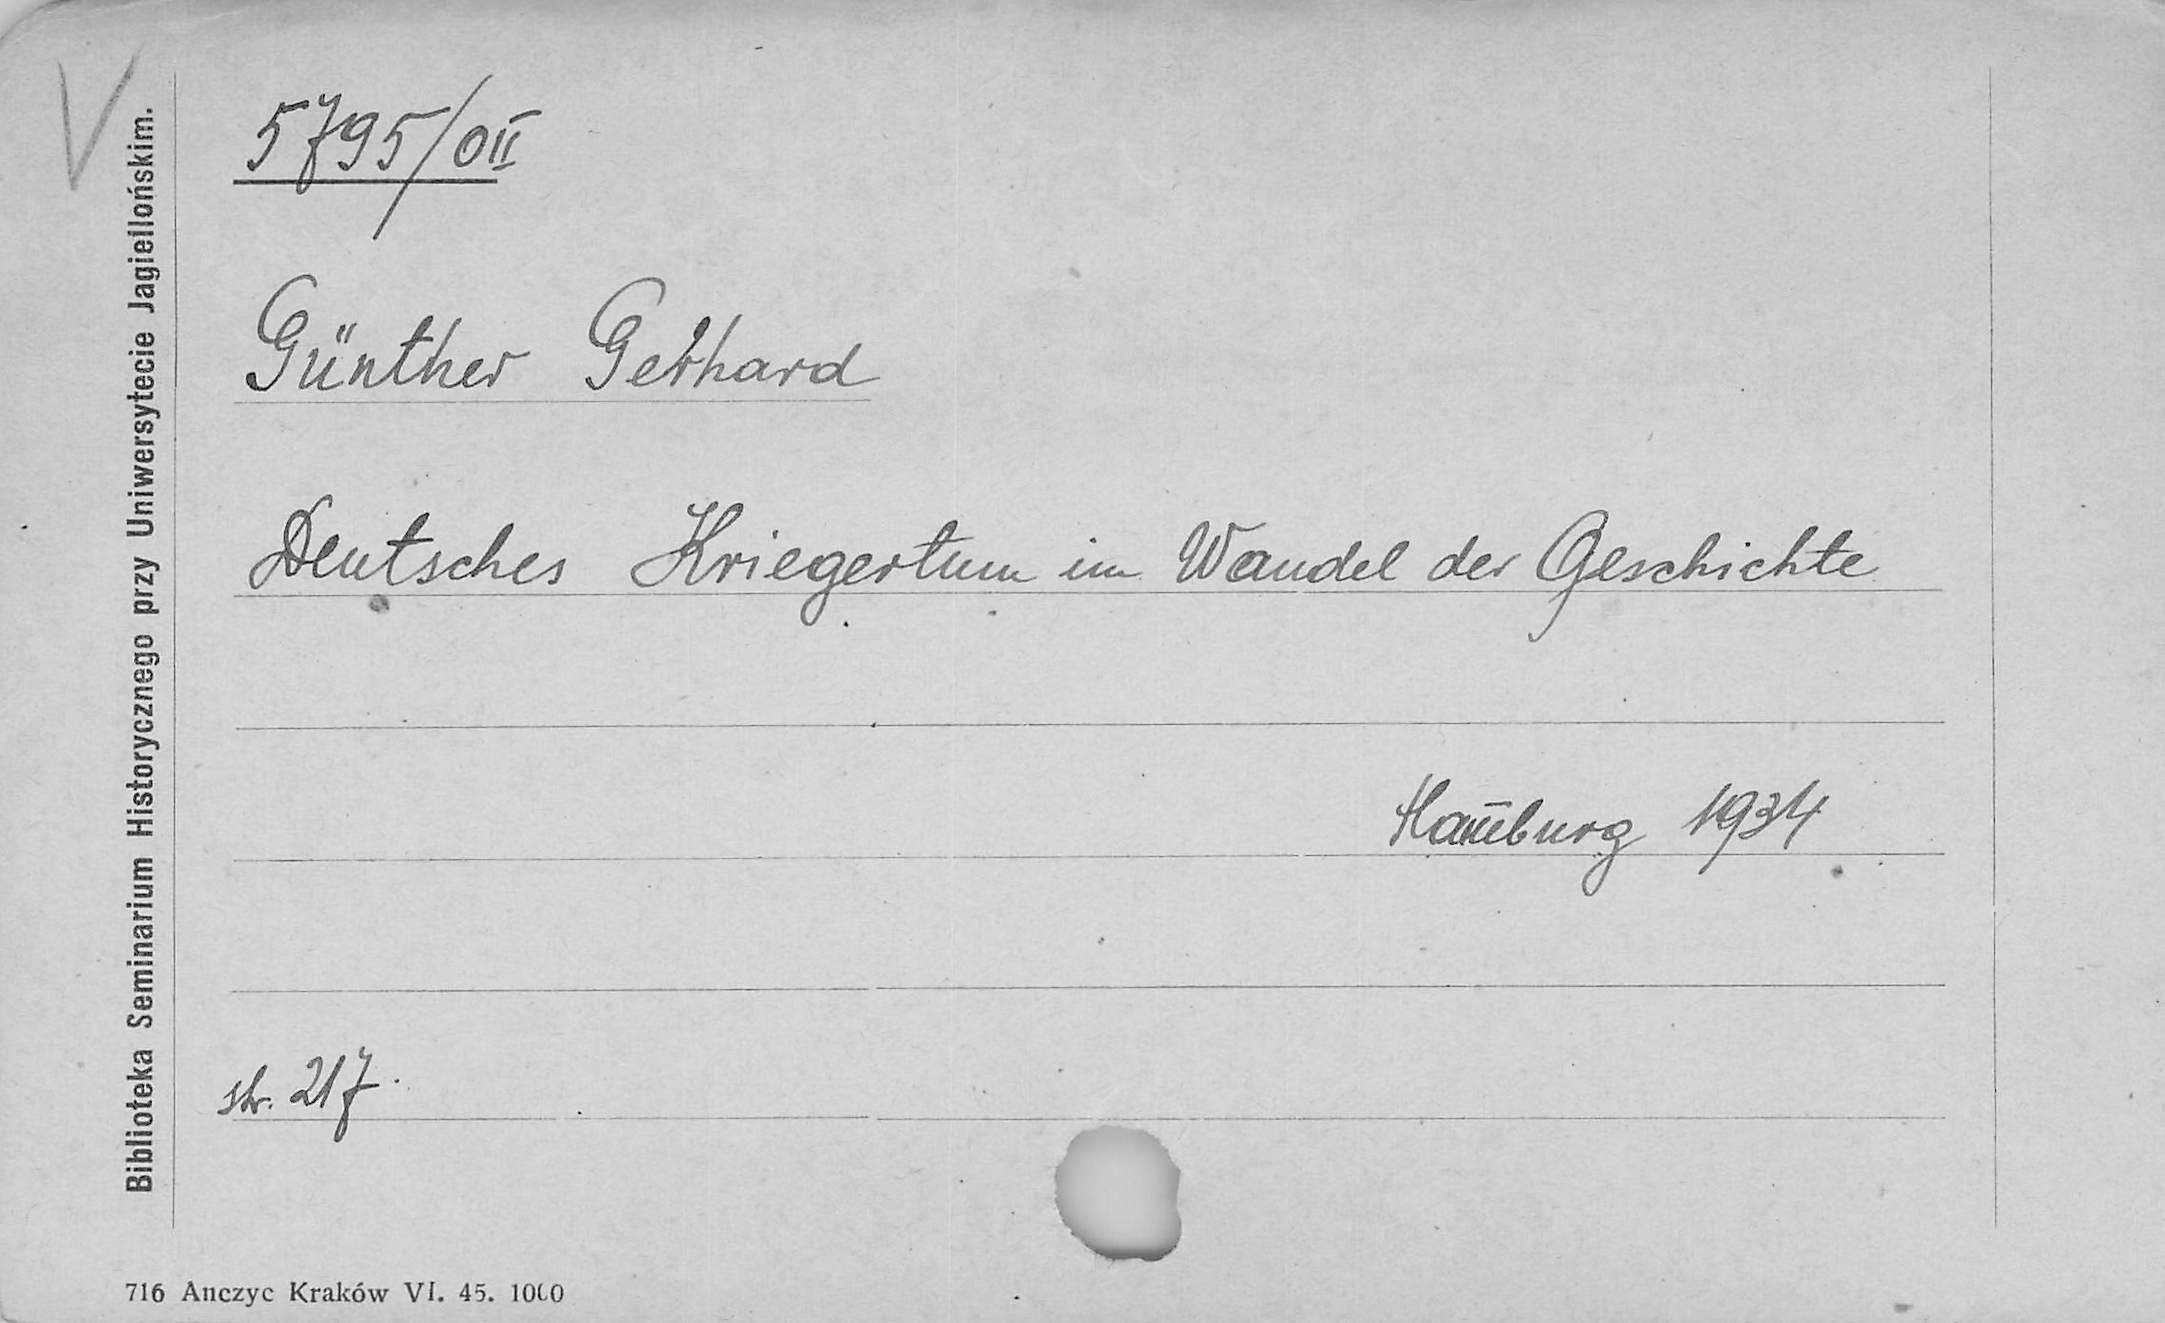 V
5795/OII
Günther Gerhard
Deutsches Kriegertum im Wandel der Geschichte
Hamburg 1934
str. 217.
Biblioteka Seminarium Historycznego przy Uniwersytecie Jagiellońskim.
716 Anczyc Kraków VI. 45. 1000